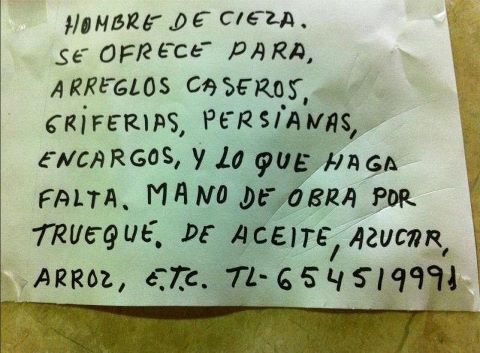 HOMBRE DE CIEZA.
SE OFRECE PARA,
ARREGLOS CASEROS,
GRIFERIAS, PERSIANAS,
ENCARGOS, Y LO QUE HAGA
FALTA. MANO DE OBRA POR
TRUEQUE. DE ACEITE, AZUCAR,
ARROZ, E.T.C. TL-654519991